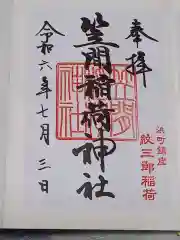 奉拝
笠間稲荷神社
令和六年七月三日
浜町鎮座
紋三郎稲荷